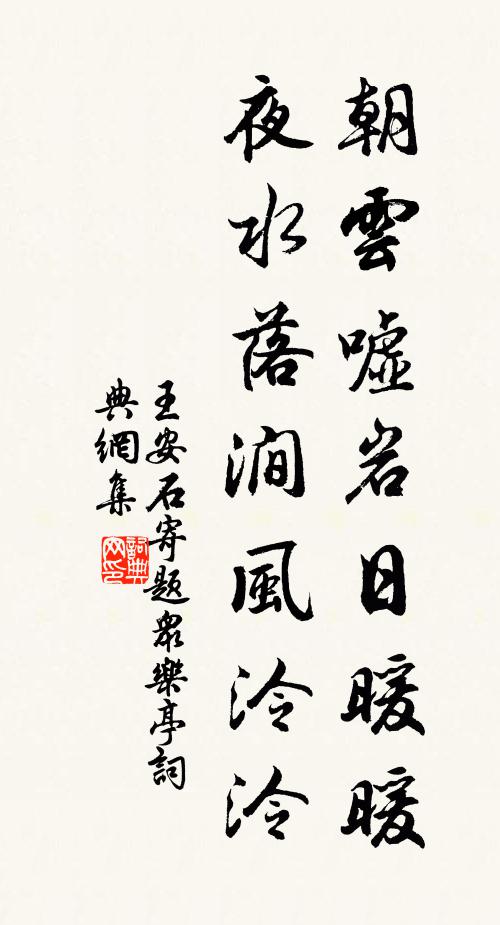 朝雲噓岩日暖暖
夜水落澗風泠泠
王安石寄題眾樂亭詞
典網集
詞典網印